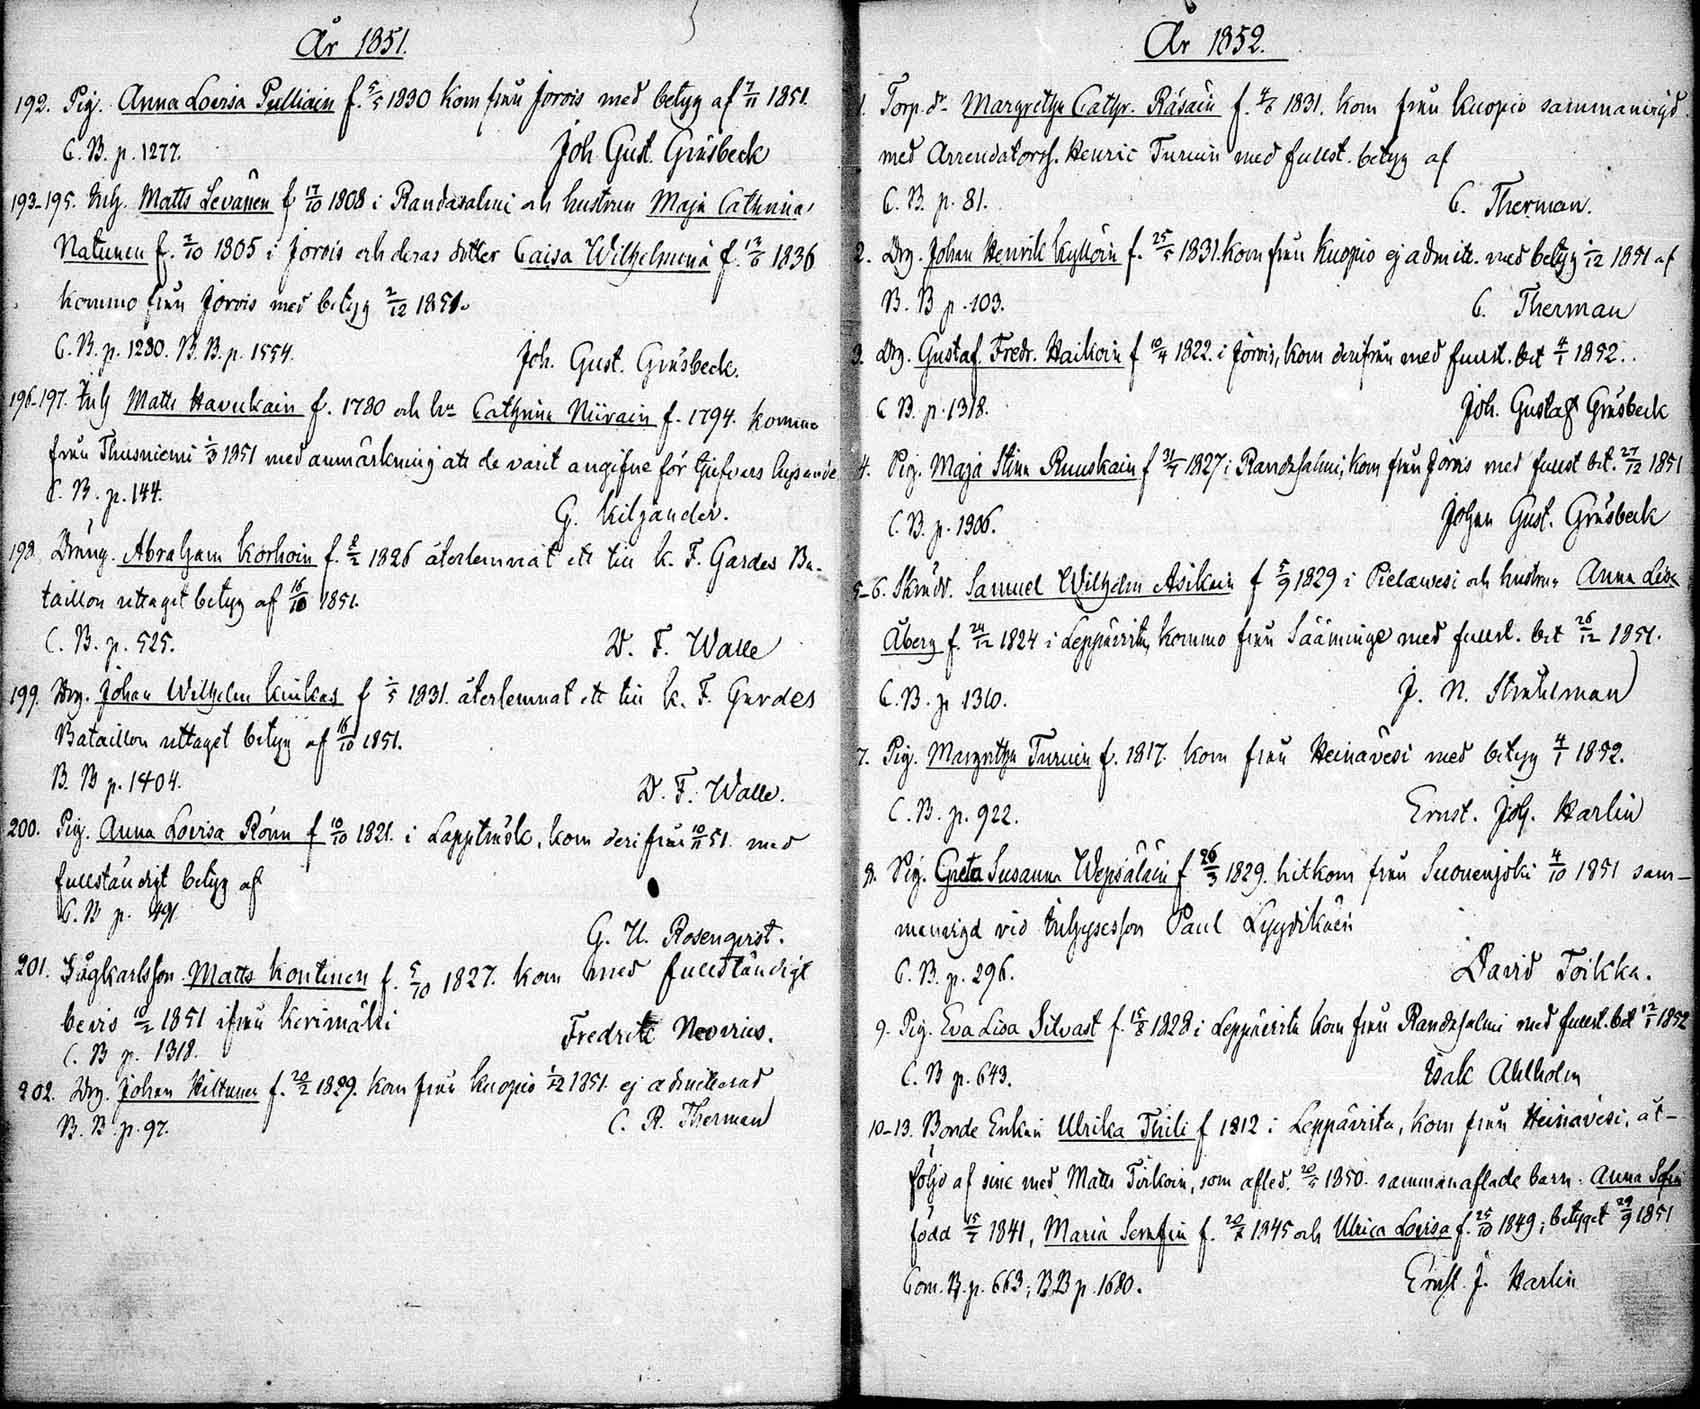 År 1851.
192. Pig. Anna Lovisa Pulliain f. 5/5 1830 kom från Jorois med betyg af 7/11 1851.
C. B. p. 1277. Joh Gust. Gråsbeck
193-195. Inh. Matts Levänen f 17/10 1808 i Randasalmi och hustrun Maja Cathrina
Natunen f. 2/10 1805 i Jorois och deras dotter Caisa Wilhelmina f. 13/6 1836
kommo från Jorois med betyg 2/12 1851.
C. B. p. 1280. B. B. p. 1554. Joh. Gust. Gråsbeck.
196-197. Inh Matts Havukain f. 1780 och hu Cathrina Niirain f. 1794. kommo
från Thusniemi 1/3 1851 med anmärkning att de varit angifne för tjufvars hysande
C. B. p. 144. G. Kiljander.
198. Dräng. Abraham Korhoin f. 2/2 1826 återlemnat ett till K. F. Gardes Ba-
taillon uttaget betyg af 16/10 1851.
C. B. p. 525. D. F. Walle
199. Drg. Johan Wilhelm Kuikas f 1/5 1831. återlemnat ett till K. F. Gardes
Bataillon uttaget betyg af 16/10 1851.
B. B p. 1404. D. F. Walle.
200. Pig. Anna Lovisa Rönn f 10/10 1821. i Lapptresk, kom derifrån 10/11 51. med
fullständigt betyg af
C. B p. 491. G. U. Rosenqvist.
201. Sågkarlsson Matts Kontinen f. 5/10 1827. kom med fullständigt
bevis 10/2 1851 ifrån Kerimäki
C. B p. 1318. Fredrik Neovius.
202. Drg. Johan Hiltunen f. 20/2 1829. kom från Kuopio 1/12 1851. ej admitterad
B. B. p. 97. C. R. Therman
År 1852.
1. Torp. dr Margretha Cathr. Räsäin f. 4/8 1831. kom från Kuopio sammanvigd
med Arrendatorss. Henric Turuin med fullst. betyg af
C. B. p. 81. C. Therman.
2. Drg. Johan Henrik Kyllöin f. 25/5 1831. kom från Kuopio ej admitt. med betyg 1/12 1851 af
B. B p. 103. C. Therman
3. Drg. Gustaf Fredr. Haikoin f 10/4 1822. i Jorois, kom derifrån med fullst. bet 4/1 1852.
C B. p. 1318. Joh. Gustaf Gråsbeck
4. Pig. Maja Stina Ruuskain f 31/7 1827 i Randasalmi, kom från Jorois med fullst bet. 27/12 1851
C. B. p. 1306. Johan Gust. Gråsbeck
5-6. Skrädd. Samuel Wilhelm Asikain f 5/9 1829 i Pielavesi och hustrun Anna Lisa
Åberg f. 24/12 1824 i Leppävirta, kommo från Sääminge med fullst. bet 26/12 1851.
C. B. p 1310. J. N. Stråhlman
7. Pig. Margretha Turuin f. 1817. kom från Heinävesi med betyg 4/1 1852.
C. B. p. 922. Ernst. Joh. Harlin
8. Pig. Greta Susanna Wepsäläin f 26/3 1829. hitkom från Suonenjoki 4/10 1851 sam-
manvigd vid Inhysesson Paul Lyydikäin
C. B. p. 296. David Toikka.
9. Pig. Eva Lisa Silvast f. 15/8 1828 i Leppävirta kom från Randasalmi med fullst. bet 12/1 1852
C. B p. 643. Isak Ahlholm
10-13. Bonde Enkan Ulrika Thili f 1812 i Leppävirta, kom från Heinävesi, åt-
följd af sine med Matts Tirkoin, som afled. 20/5 1850. sammanaflade barn. Anna Sofia
född 15/7 1841, Maria Serafia f. 20/8 1845 och Ulrica Lovisa f. 25/10 1849; betyget 29/9 1851
Com. B. p. 663; B. B p. 1680. Ernst. J. Harlin